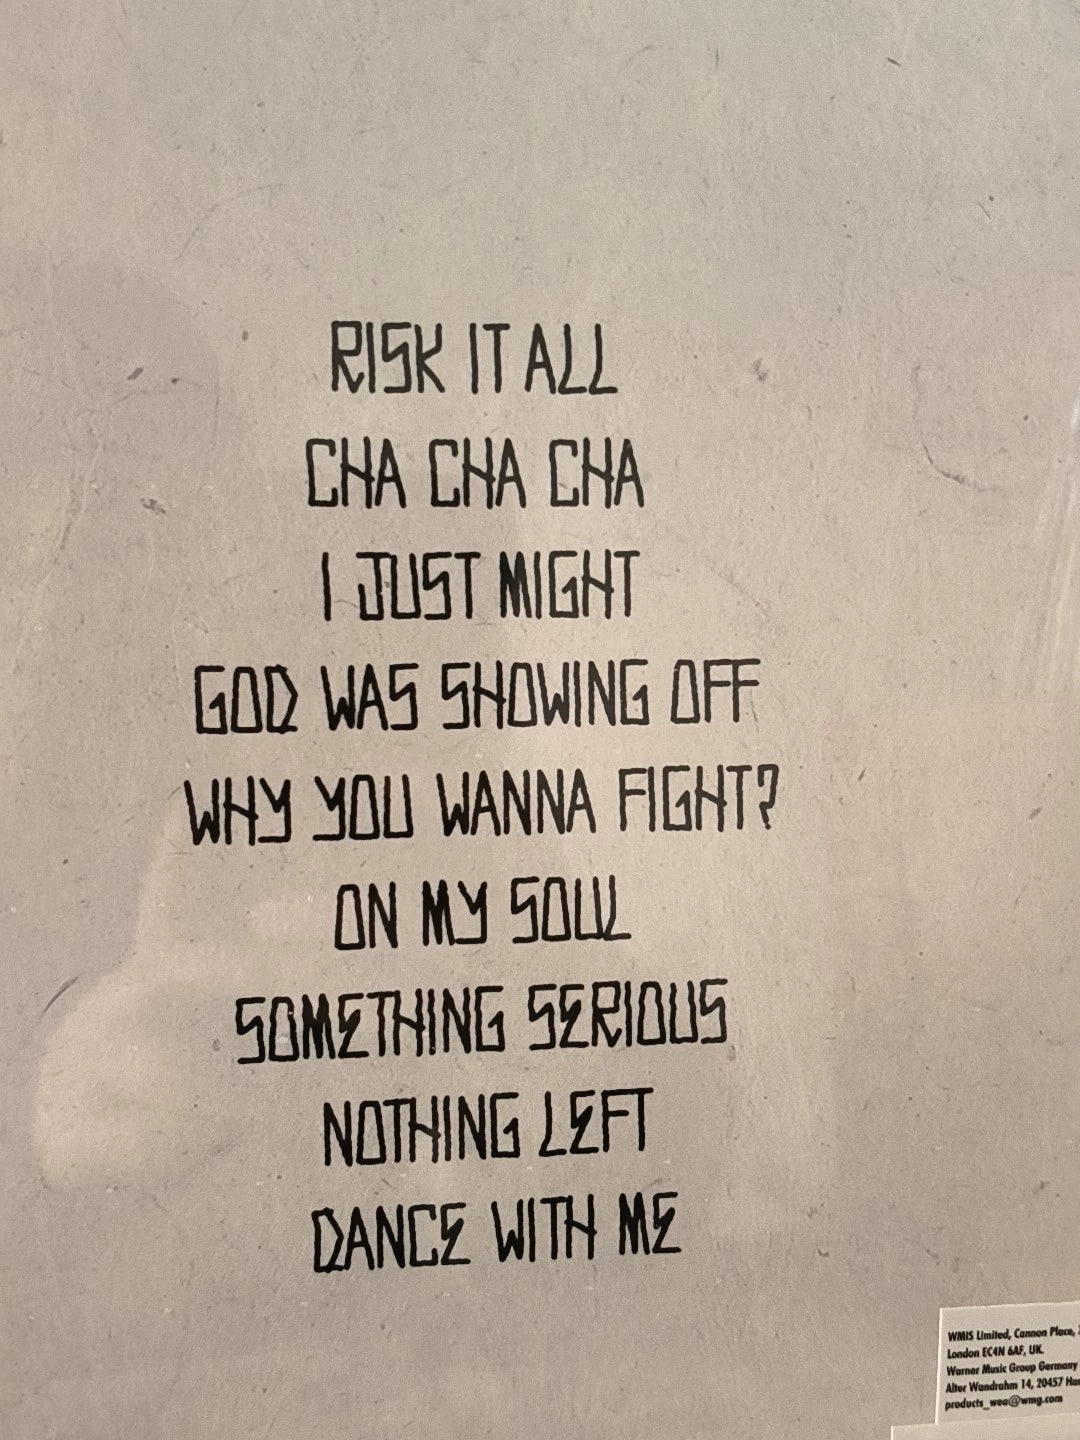 RISK IT ALL
CHA CHA CHA
I JUST MIGHT
GOD WAS SHOWING OFF
WHY YOU WANNA FIGHT?
ON MY SOUL
SOMETHING SERIOUS
NOTHING LEFT
DANCE WITH ME
WMIS Limited, Cannon Place,
London EC4N 6AF, UK.
Warner Music Group Germany
Alter Wandrahm 14, 20457
products_wea@wmg.com